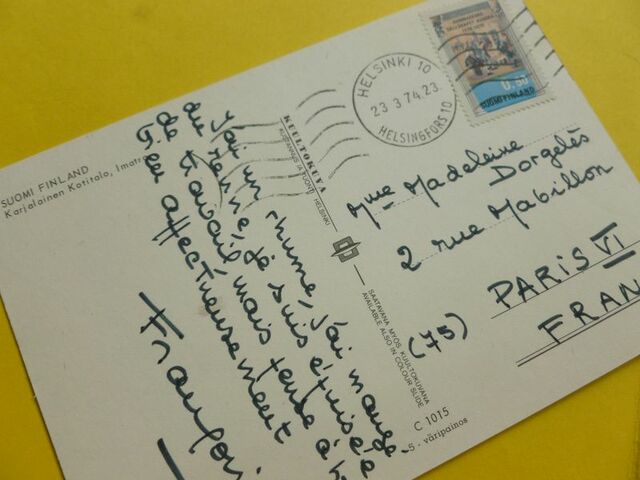 SUOMI FINLAND
Karjalainen Kotitalo, Imatra
J'ai un rhume, j'ai mangé
du renne, je suis épuisée
de travail, mais pense à
bien affectueusement
KUULTOKUVA
HELSINKI
SAATAVANA MYÖS KUULTOKUVANA
AVAILABLE ALSO IN COLOUR SLIDE
C 1015
5 - väripainos
HELSINKI 10
23.3.74.23
HELSINGFORS 10
0,60
SUOMI FINLAND
Mme Madeleine
Dorgelès
2 rue Mabillon
PARIS VI
(75)
FRAN